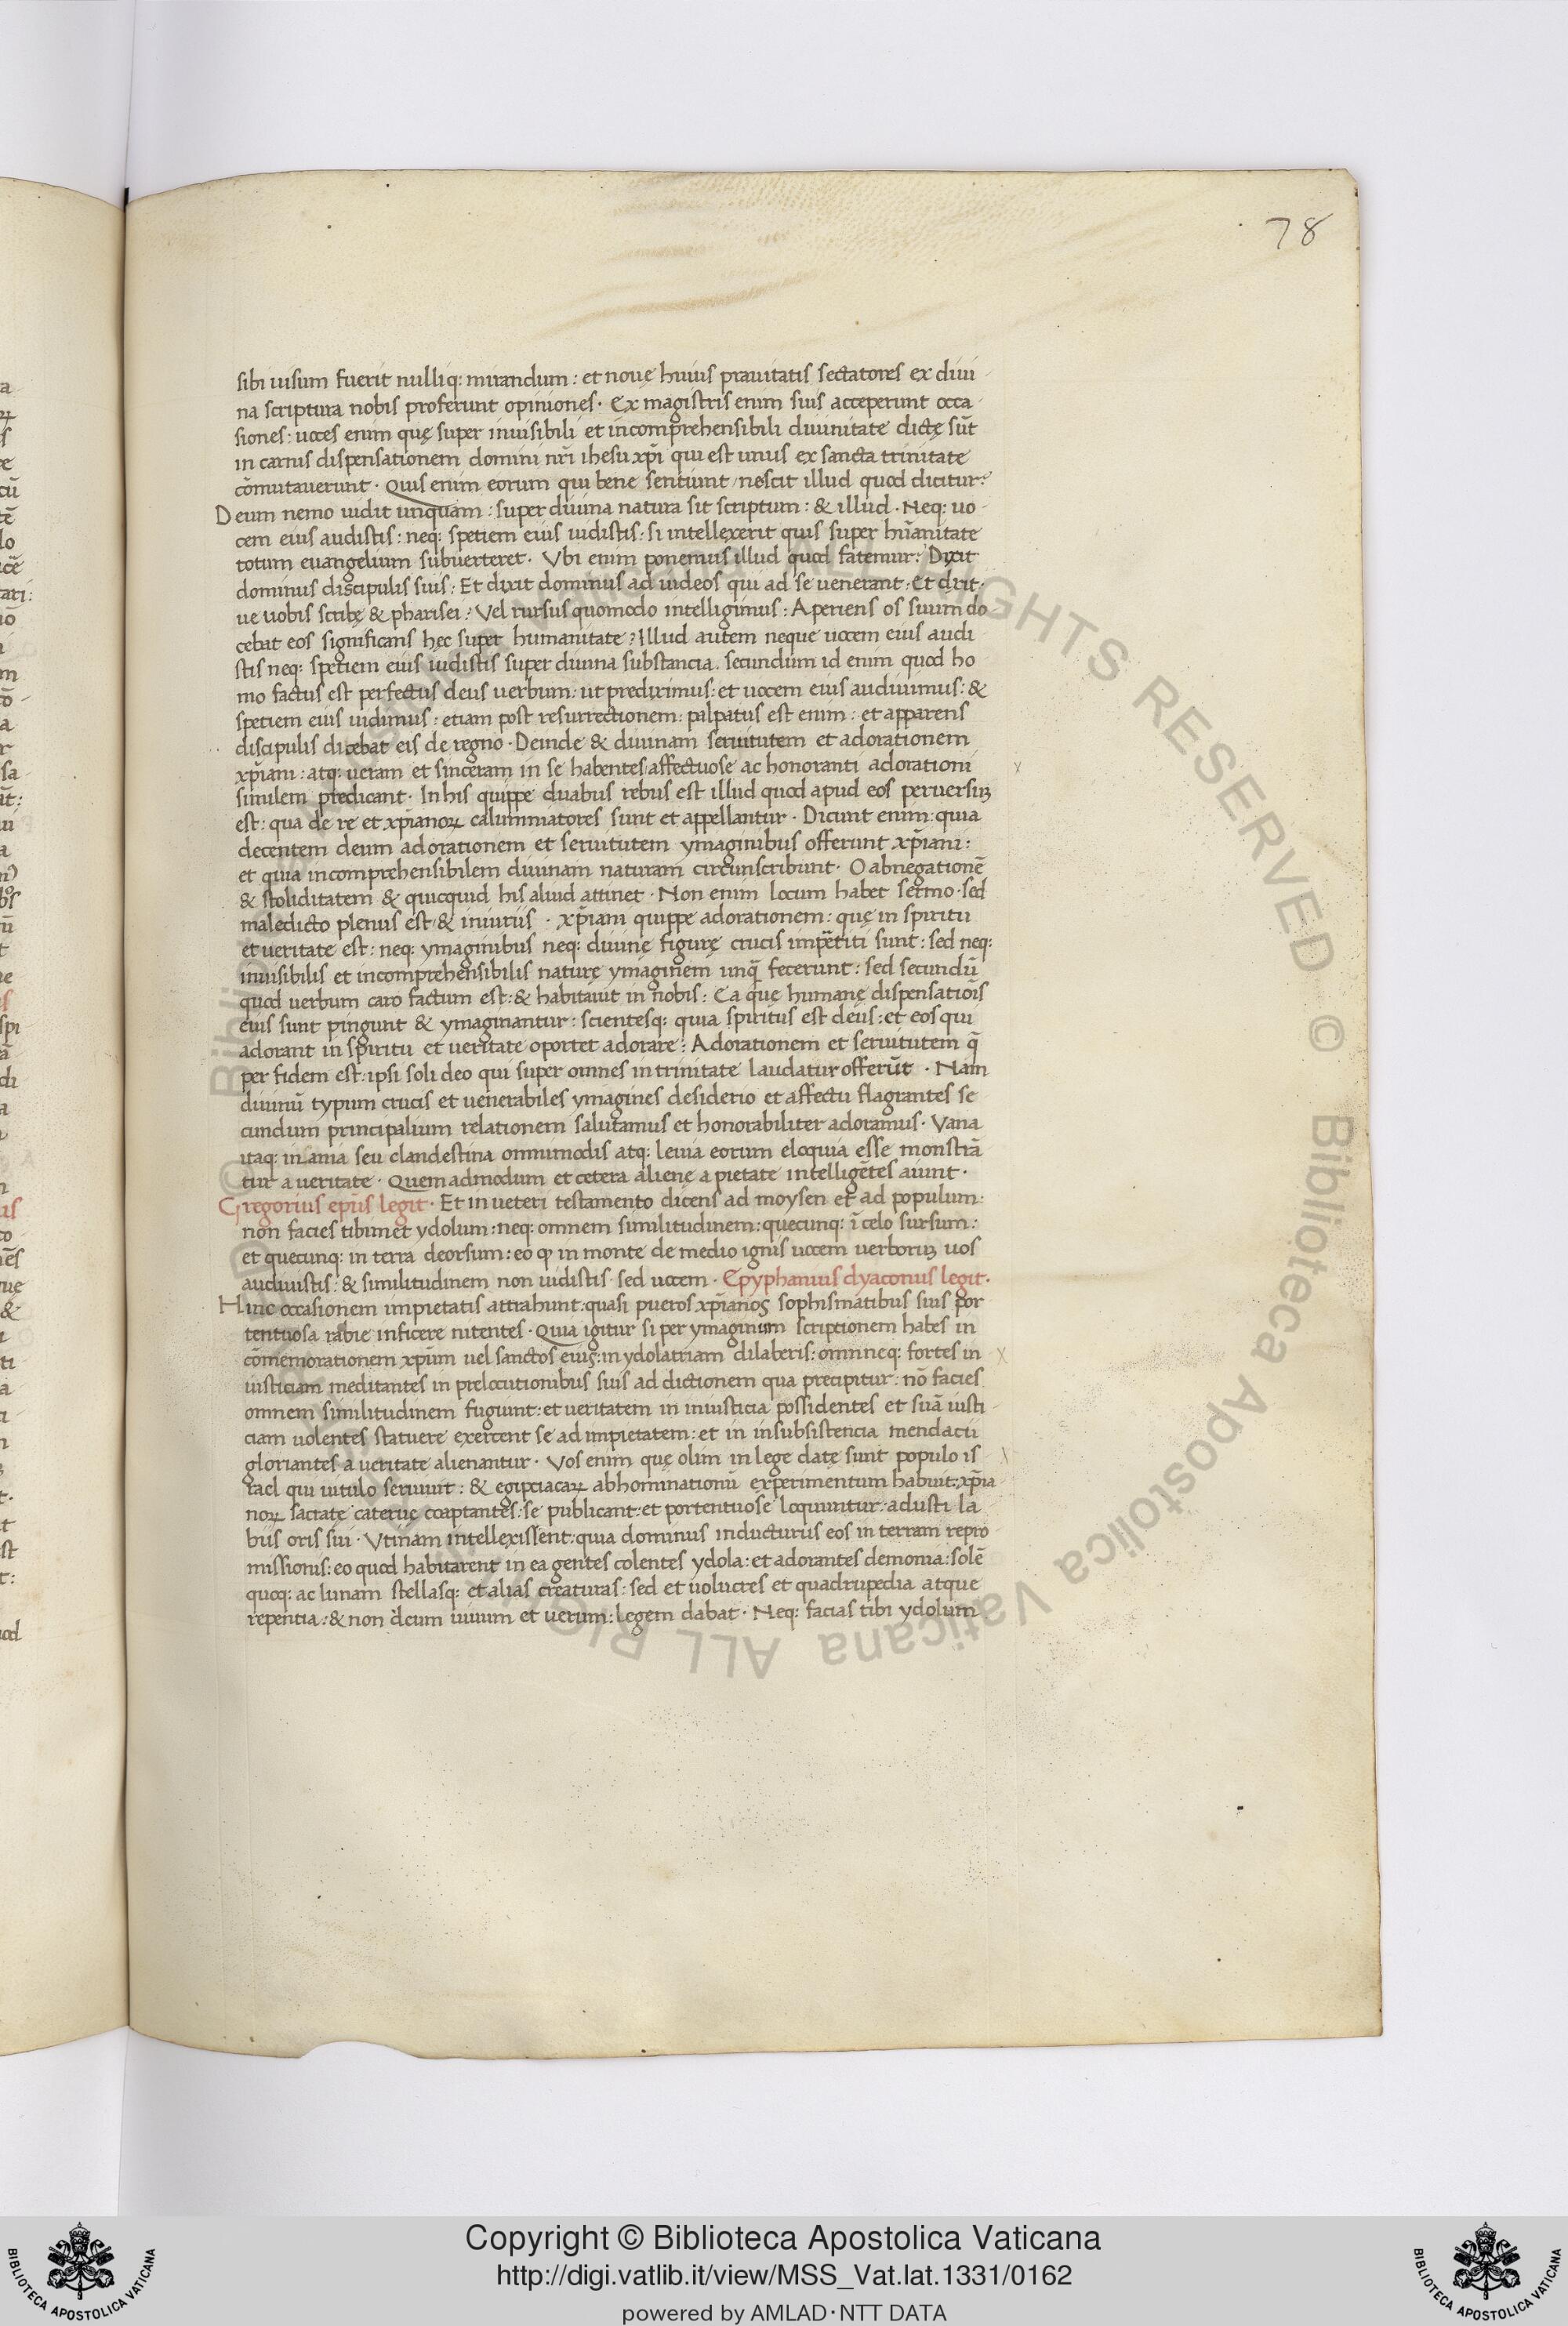 78
sibi uisum fuerit nulliq: mirandum: et nouę huius prauitatis sectatores ex diui
na scriptura nobis proferunt opiniones. Ex magistris enim suis acceperunt occa-
siones: uoces enim quę super inuisibili et incomprehensibili diuinitate dictę sūt
in carnis dispensationem domini nr̄i ihesu xp̄i qui est unus ex sancta trinitate
cōmutauerunt. Quis enim eorum qui bene sentiunt / nescit illud quod dicitur?
Deum nemo uidit unquam: super diuina natura sit scriptum: & illud. Neq: uo-
cem eius audistis: neq: spetiem eius uidistis: si intellexerit quis super hūanitate
totum euangelium subuerteret. Vbi enim ponemus illud quod fatemur? Dixit
dominus discipulis suis: Et dixit dominus ad iudeos qui ad se uenerant: Et dixit.
ue uobis scribę & pharisei? Vel rursus quomodo intelligimus: Aperiens os suum do
cebat eos significans hęc super humanitate? Illud autem neque uocem eius audi
stis neq: spetiem eius uidistis super diuina substancia. secundum id enim quod ho
mo factus est perfectus deus uerbum: ut prediximus: et uocem eius audiuimus: &
spetiem eius uidimus: etiam post resurrectionem: palpatus est enim: et apparens
discipulis dicebat eis de regno. Deinde & diuinam seruitutem et adorationem
xp̄iani: atq: ueram et sinceram in se habentes affectuose ac honoranti adorationi
similem predicant. In his quippe duabus rebus est illud quod apud eos peruersiꝫ
est: qua de re et xp̄ianoꝝ calumniatores sunt et appellantur. Dicunt enim: quia
decentem deum adorationem et seruitutem ymaginibus offerunt xp̄iani:
et quia incomprehensibilem diuinam naturam circunscribunt. O abnegationē
& stoliditatem & quicquid his aliud attinet. Non enim locum habet sermo. sed
maledicto plenus est & iniuriis. xp̄iani quippe adorationem: quę in spiritu
et ueritate est: neq: ymaginibus neq: diuinę figurę crucis impetiti sunt: sed neq:
inuisibilis et incomprehensibilis naturę ymaginem unq̄ fecerunt: sed secundū
quod uerbum caro factum est: & habitauit in nobis: Ea quę humanę dispensatiōis
eius sunt pingunt & ymaginantur: scientesq: quia spiritus est deus: et eos qui
adorant in spiritu et ueritate oportet adorare: Adorationem et seruitutem q̄
per fidem est: ipsi soli deo qui super omnes in trinitate laudatur offerūt. Nam
diuinū typum crucis et uenerabiles ymagines desiderio et affectu flagrantes se
cundum principalium relationem salutamus et honorabiliter adoramus. Vana
itaq: inania seu clandestina omnimodis atq: leuia eorum eloquia esse monstrā
tur a ueritate. Quemadmodum et cetera alienę a pietate intelligētes aiunt.
Gregorius ep̄us legit. Et in ueteri testamento dicens ad moysen et ad populum:
non facies tibimet ydolum: neq: omnem similitudinem: quecunq: ī celo sursum:
et quecunq: in terra deorsum: eo ꝙ in monte de medio ignis uocem uerboruꝫ uos
audiuistis: & similitudinem non uidistis sed uocem. Epyphanius dyaconus legit.
Hinc occasionem impietatis attrahunt: quasi pueros xp̄ianos sophismatibus suis por
tentuosa rabie inficere nitentes. Quia igitur si per ymaginum scriptionem habes in
cōmemorationem xp̄um uel sanctos eius: in ydolatriam dilaberis: omnneq: fortes in
iusticiam meditantes in prelocutionibus suis ad dictionem qua precipitur: nō facies
omnem similitudinem fugiunt: et ueritatem in iniusticia possidentes et suā iusti-
ciam uolentes statuere exercent se ad impietatem: et in insubsistencia mendacii
gloriantes a ueritate alienantur. Vos enim quę olim in lege datę sunt populo is
rael qui uitulo seruiuit: & egipciacaꝝ abhominationū experimentum habuit: xp̄ia
noꝝ sacratę cateruę coaptantes: se publicant: et portentuose loquuntur: adusti la
biis oris sui. Vtinam intellexissent: quia dominus inducturus eos in terram repro
missionis: eo quod habitarent in ea gentes colentes ydola: et adorantes demonia: solē
quoq: ac lunam stellasq: et alias creaturas: sed et uolucres et quadrupedia atque
repentia: & non deum uiuum et uerum: legem dabat. Neq: facias tibi ydolum
Copyright © Biblioteca Apostolica Vaticana
http://digi.vatlib.it/view/MSS_Vat.lat.1331/0162
powered by AMLAD·NTT DATA
BIBLIOTECA APOSTOLICA VATICANA
BIBLIOTECA APOSTOLICA VATICANA